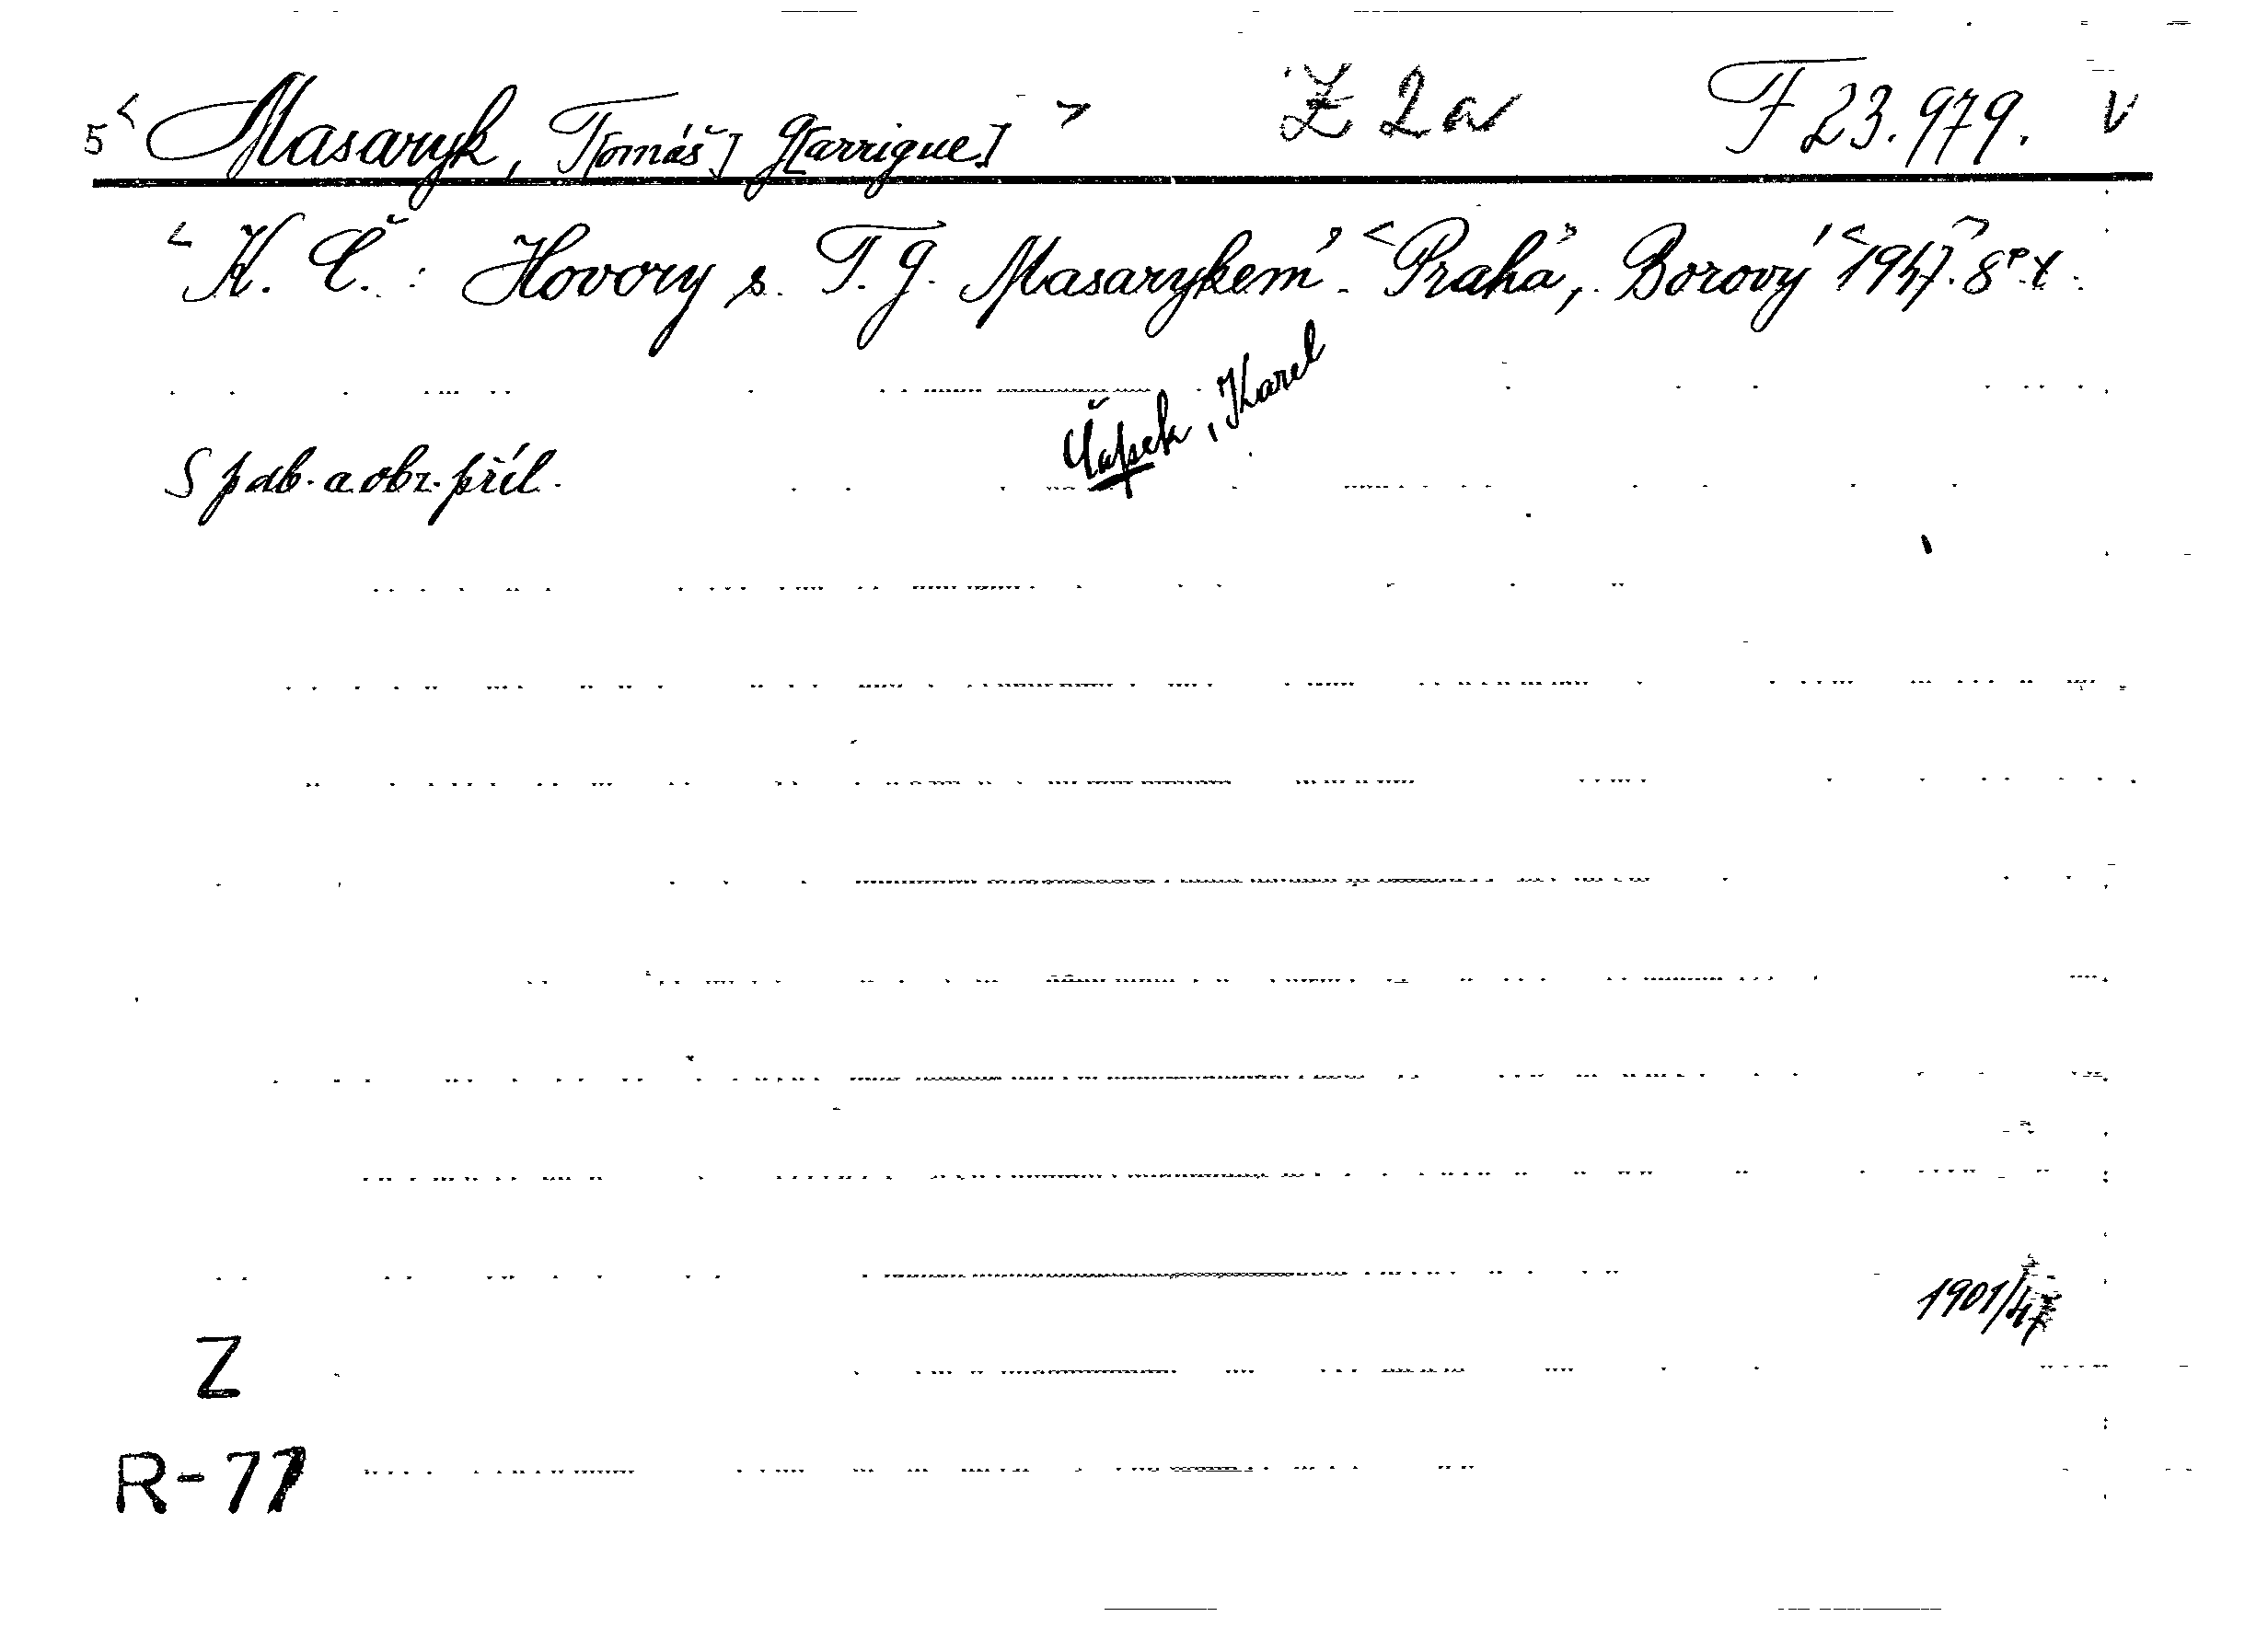 5 < Masaryk, T[omáš] G[arrigue] > Z 2a F 23.979. V
< K. Č.: Hovory s T. G. Masarykem > - < Praha >, Borový < 1947. > 8°
Čapek, Karel
S pdb. a obr. příl.
1901/47
Z
R-77